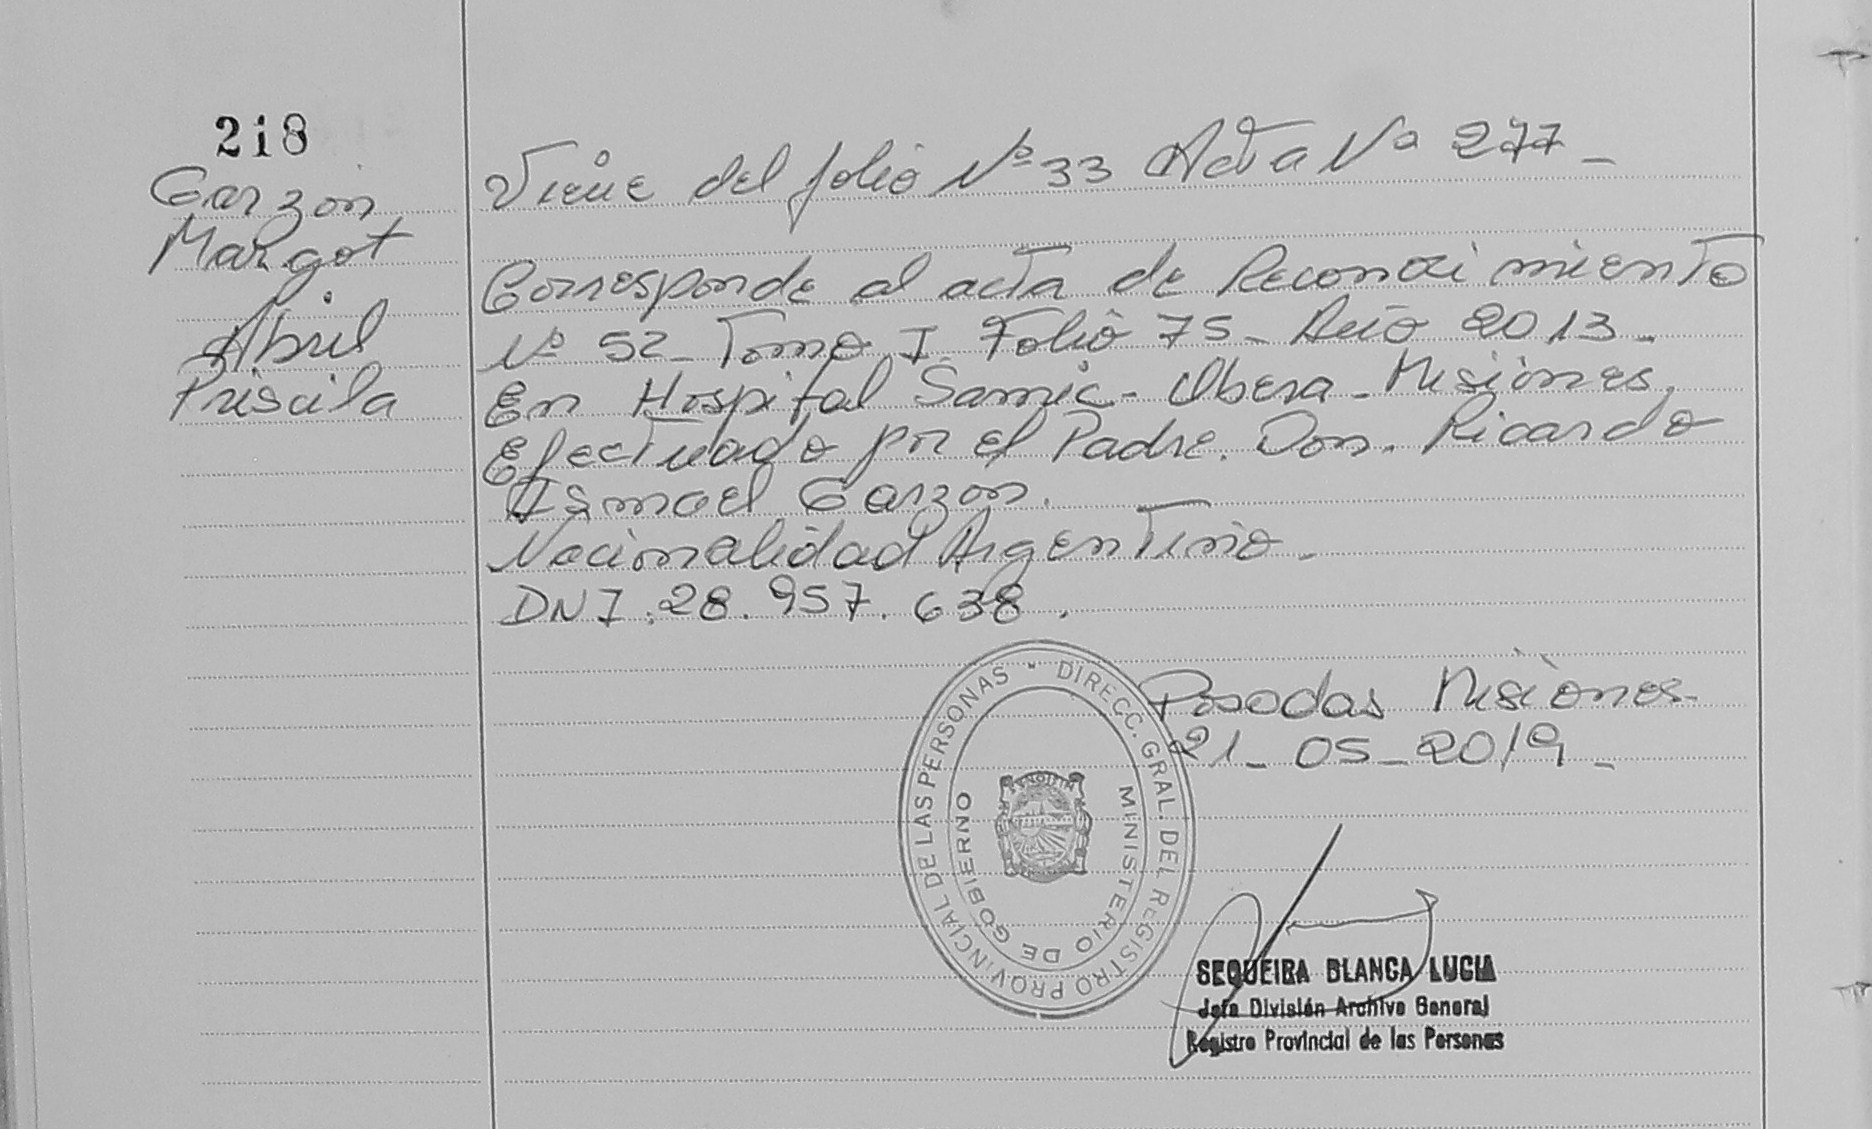 218
Garzon
Margot
Abril
Priscila
Viene del folio Nº 33 Acta Nº 277 -
Corresponde al acta de Reconocimiento
Nº 52 - Tomo I. Folio 75 - Año 2013 -
En Hospital Samic - Obera - Misiones.
Efectuado por el Padre. Don. Ricardo
Ismael Garzon.
Nacionalidad Argentino -
DNI. 28.957.638.
Posadas Misiones -
21 - 05 - 2019 -
DIRECC. GRAL. DEL REGISTRO PROVINCIAL DE LAS PERSONAS
MINISTERIO DE GOBIERNO
SEQUEIRA BLANCA LUCIA
Jefa División Archivo General
Registro Provincial de las Personas